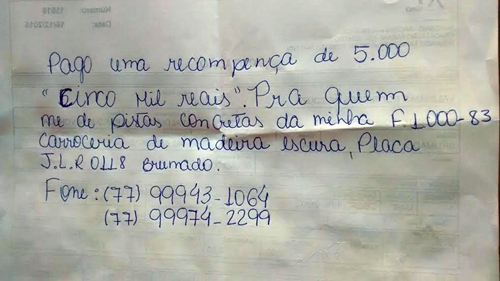 Pago uma recompença de 5.000
"Cinco mil reais". Pra quem
me de pistas concretas da minha F.1000-83
Carroceria de madeira escura, Placa
J.L.R 0118 Brumado.
Fone: (77) 99943-1064
(77) 99974-2299